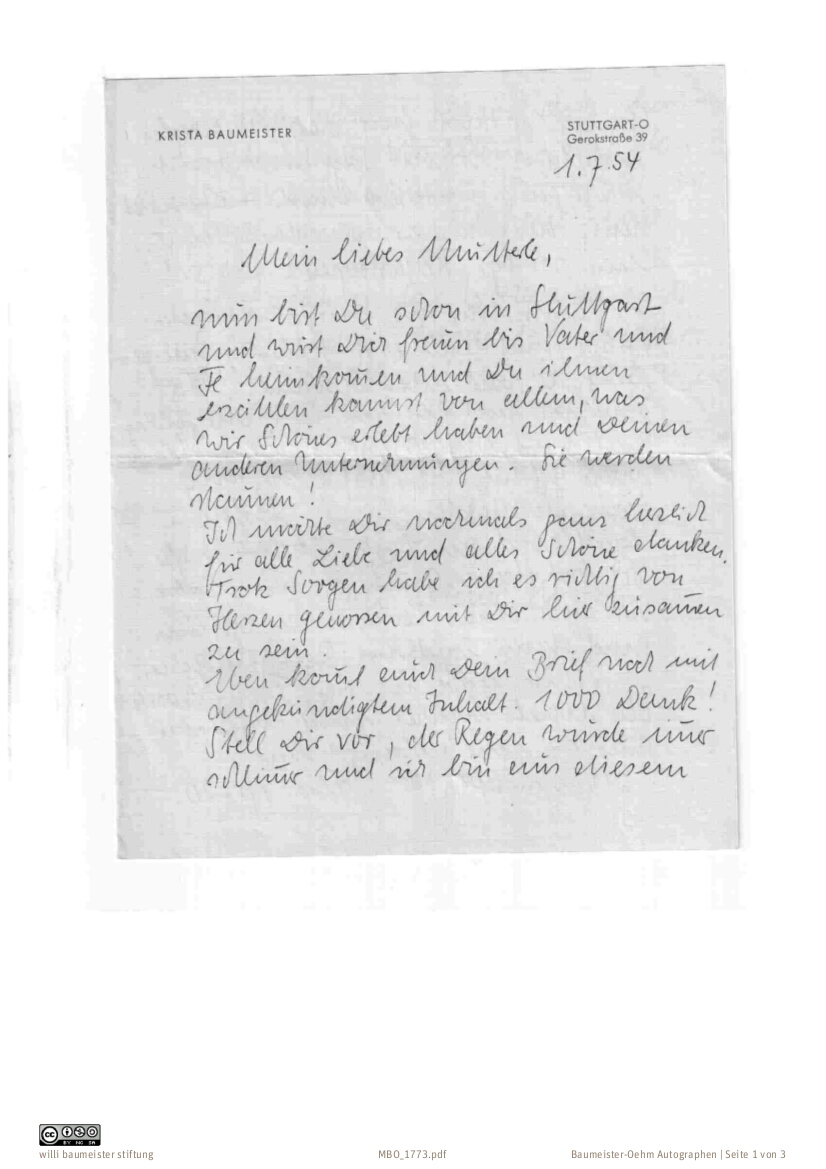 KRISTA BAUMEISTER
STUTTGART-O
Gerokstraße 39
1.7.54
Mein liebes Mutterle,
nun bist Du schon in Stuttgart
und wirst Dich freuen bis Vater und
Fe heimkom̄en und Du ihnen
erzählen kannst von allem, was
wir Schönes erlebt haben und Deinen
anderen Unternehmungen. Sie werden
staunen!
Ich möchte Dir nochmals ganz herzlich
für alle Liebe und alles Schöne danken.
Trotz Sorgen habe ich es richtig von
Herzen genossen mit Dir hier zusam̄en
zu sein.
Eben kom̄t auch Dein Brief noch mit
angekündigtem Inhalt. 1000 Dank!
Stell Dir vor, der Regen wurde im̄er
schlim̄er und ich bin aus diesem
CC BY NC SA
willi baumeister stiftung
MBO_1773.pdf
Baumeister-Oehm Autographen | Seite 1 von 3